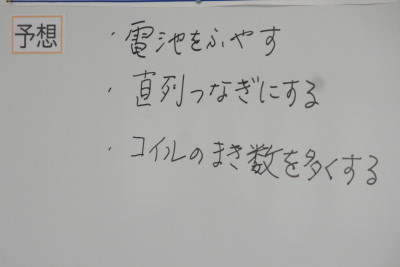 予想
・電池をふやす
・直列つなぎにする
・コイルのまき数を多くする